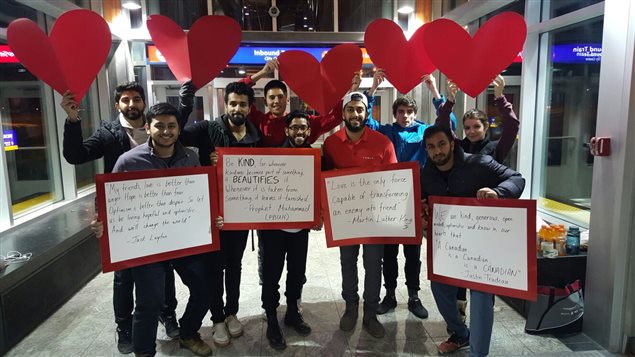 Inbound Train
bound Train
"My friends, love is better than
anger. Hope is better than fear.
Optimism is better than despair. So let
us be loving, hopeful and optimistic
And we'll change the world"
- Jack Layton
Be KIND, for whenever
kindness becomes part of something,
it BEAUTIFIES it
Whenever it is taken from
something, it leaves it tarnished.
- Prophet Muhammad
(PBUH)
"Love is the only force
capable of transforming
an enemy into friend"
- Martin Luther King
WE are kind, generous, open
minded, optimistic and know in our
hearts that
"A Canadian
is a Canadian
is a CANADIAN"
- Justin Trudeau